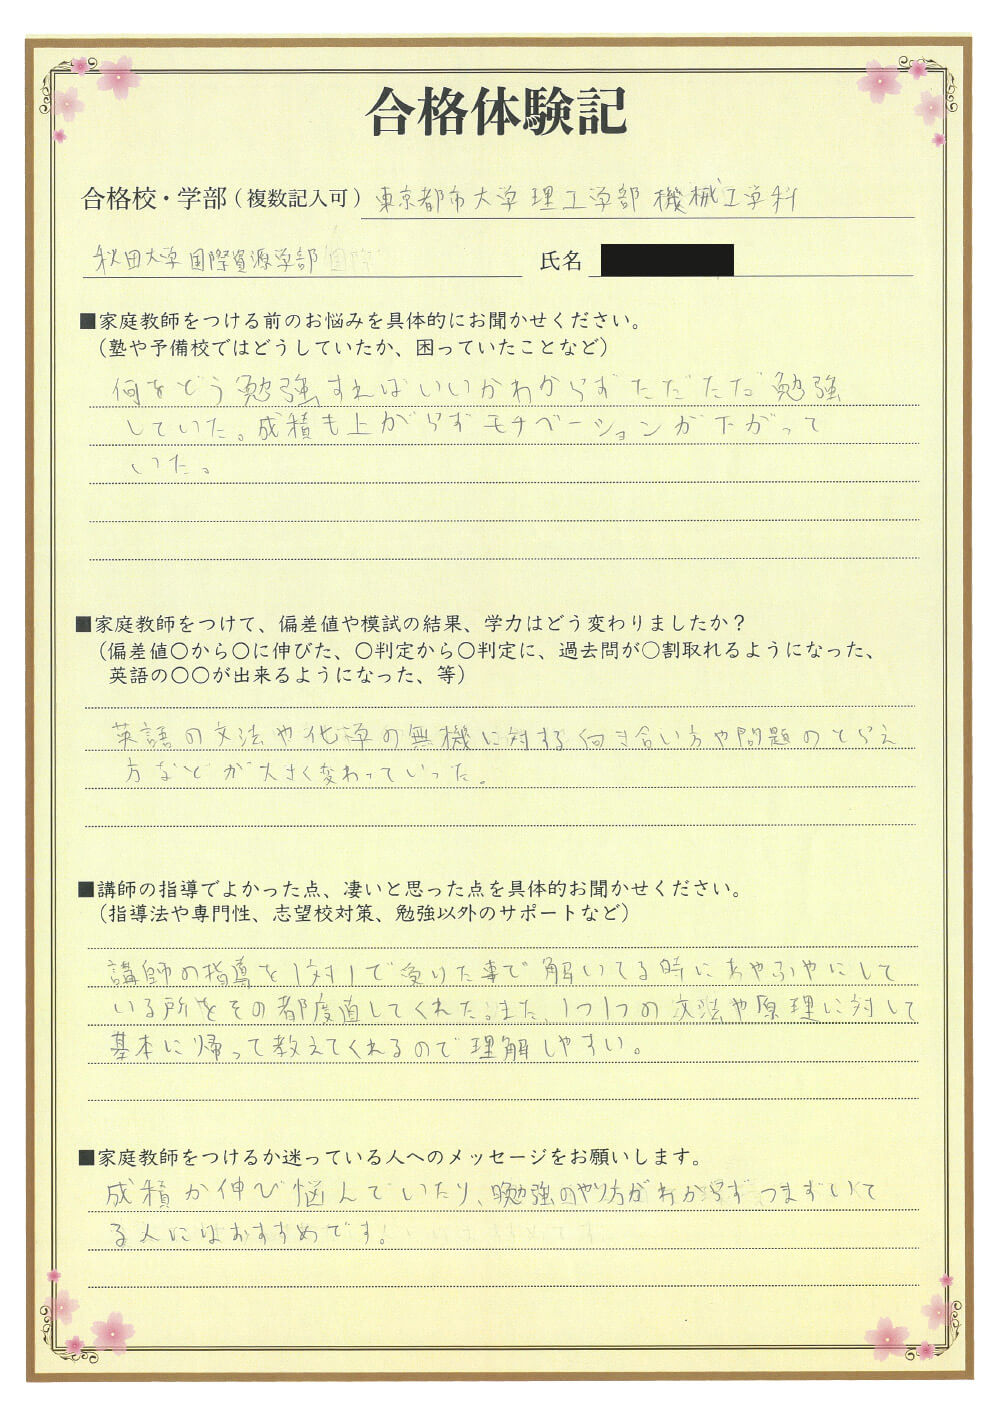 合格体験記
合格校・学部（複数記入可）東京都市大学 理工学部 機械工学科
秋田大学 国際資源学部
氏名
■家庭教師をつける前のお悩みを具体的にお聞かせください。
（塾や予備校ではどうしていたか、困っていたことなど）
何をどう勉強すればいいかわからずただただ勉強
していた。成積も上がらずモチベーションが下がって
いた。
■家庭教師をつけて、偏差値や模試の結果、学力はどう変わりましたか？
（偏差値〇から〇に伸びた、〇判定から〇判定に、過去問が〇割取れるようになった、
英語の〇〇が出来るようになった、等）
英語の文法や化学の無機に対する向き合い方や問題のとらえ
方などが大きく変わっていった。
■講師の指導でよかった点、凄いと思った点を具体的お聞かせください。
（指導法や専門性、志望校対策、勉強以外のサポートなど）
講師の指導を1対1で受けた事で解いてる時にあやふやにして
いる所をその都度直してくれた。また、1つ1つの文法や原理に対して
基本に帰って教えてくれるので理解しやすい。
■家庭教師をつけるか迷っている人へのメッセージをお願いします。
成積が伸び悩んでいたり、勉強のやり方がわからずつまずいて
る人にはおすすめです!